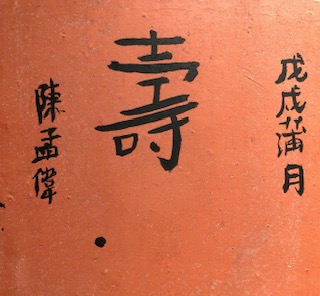 戊戌蒲月
壽
陳孟偉